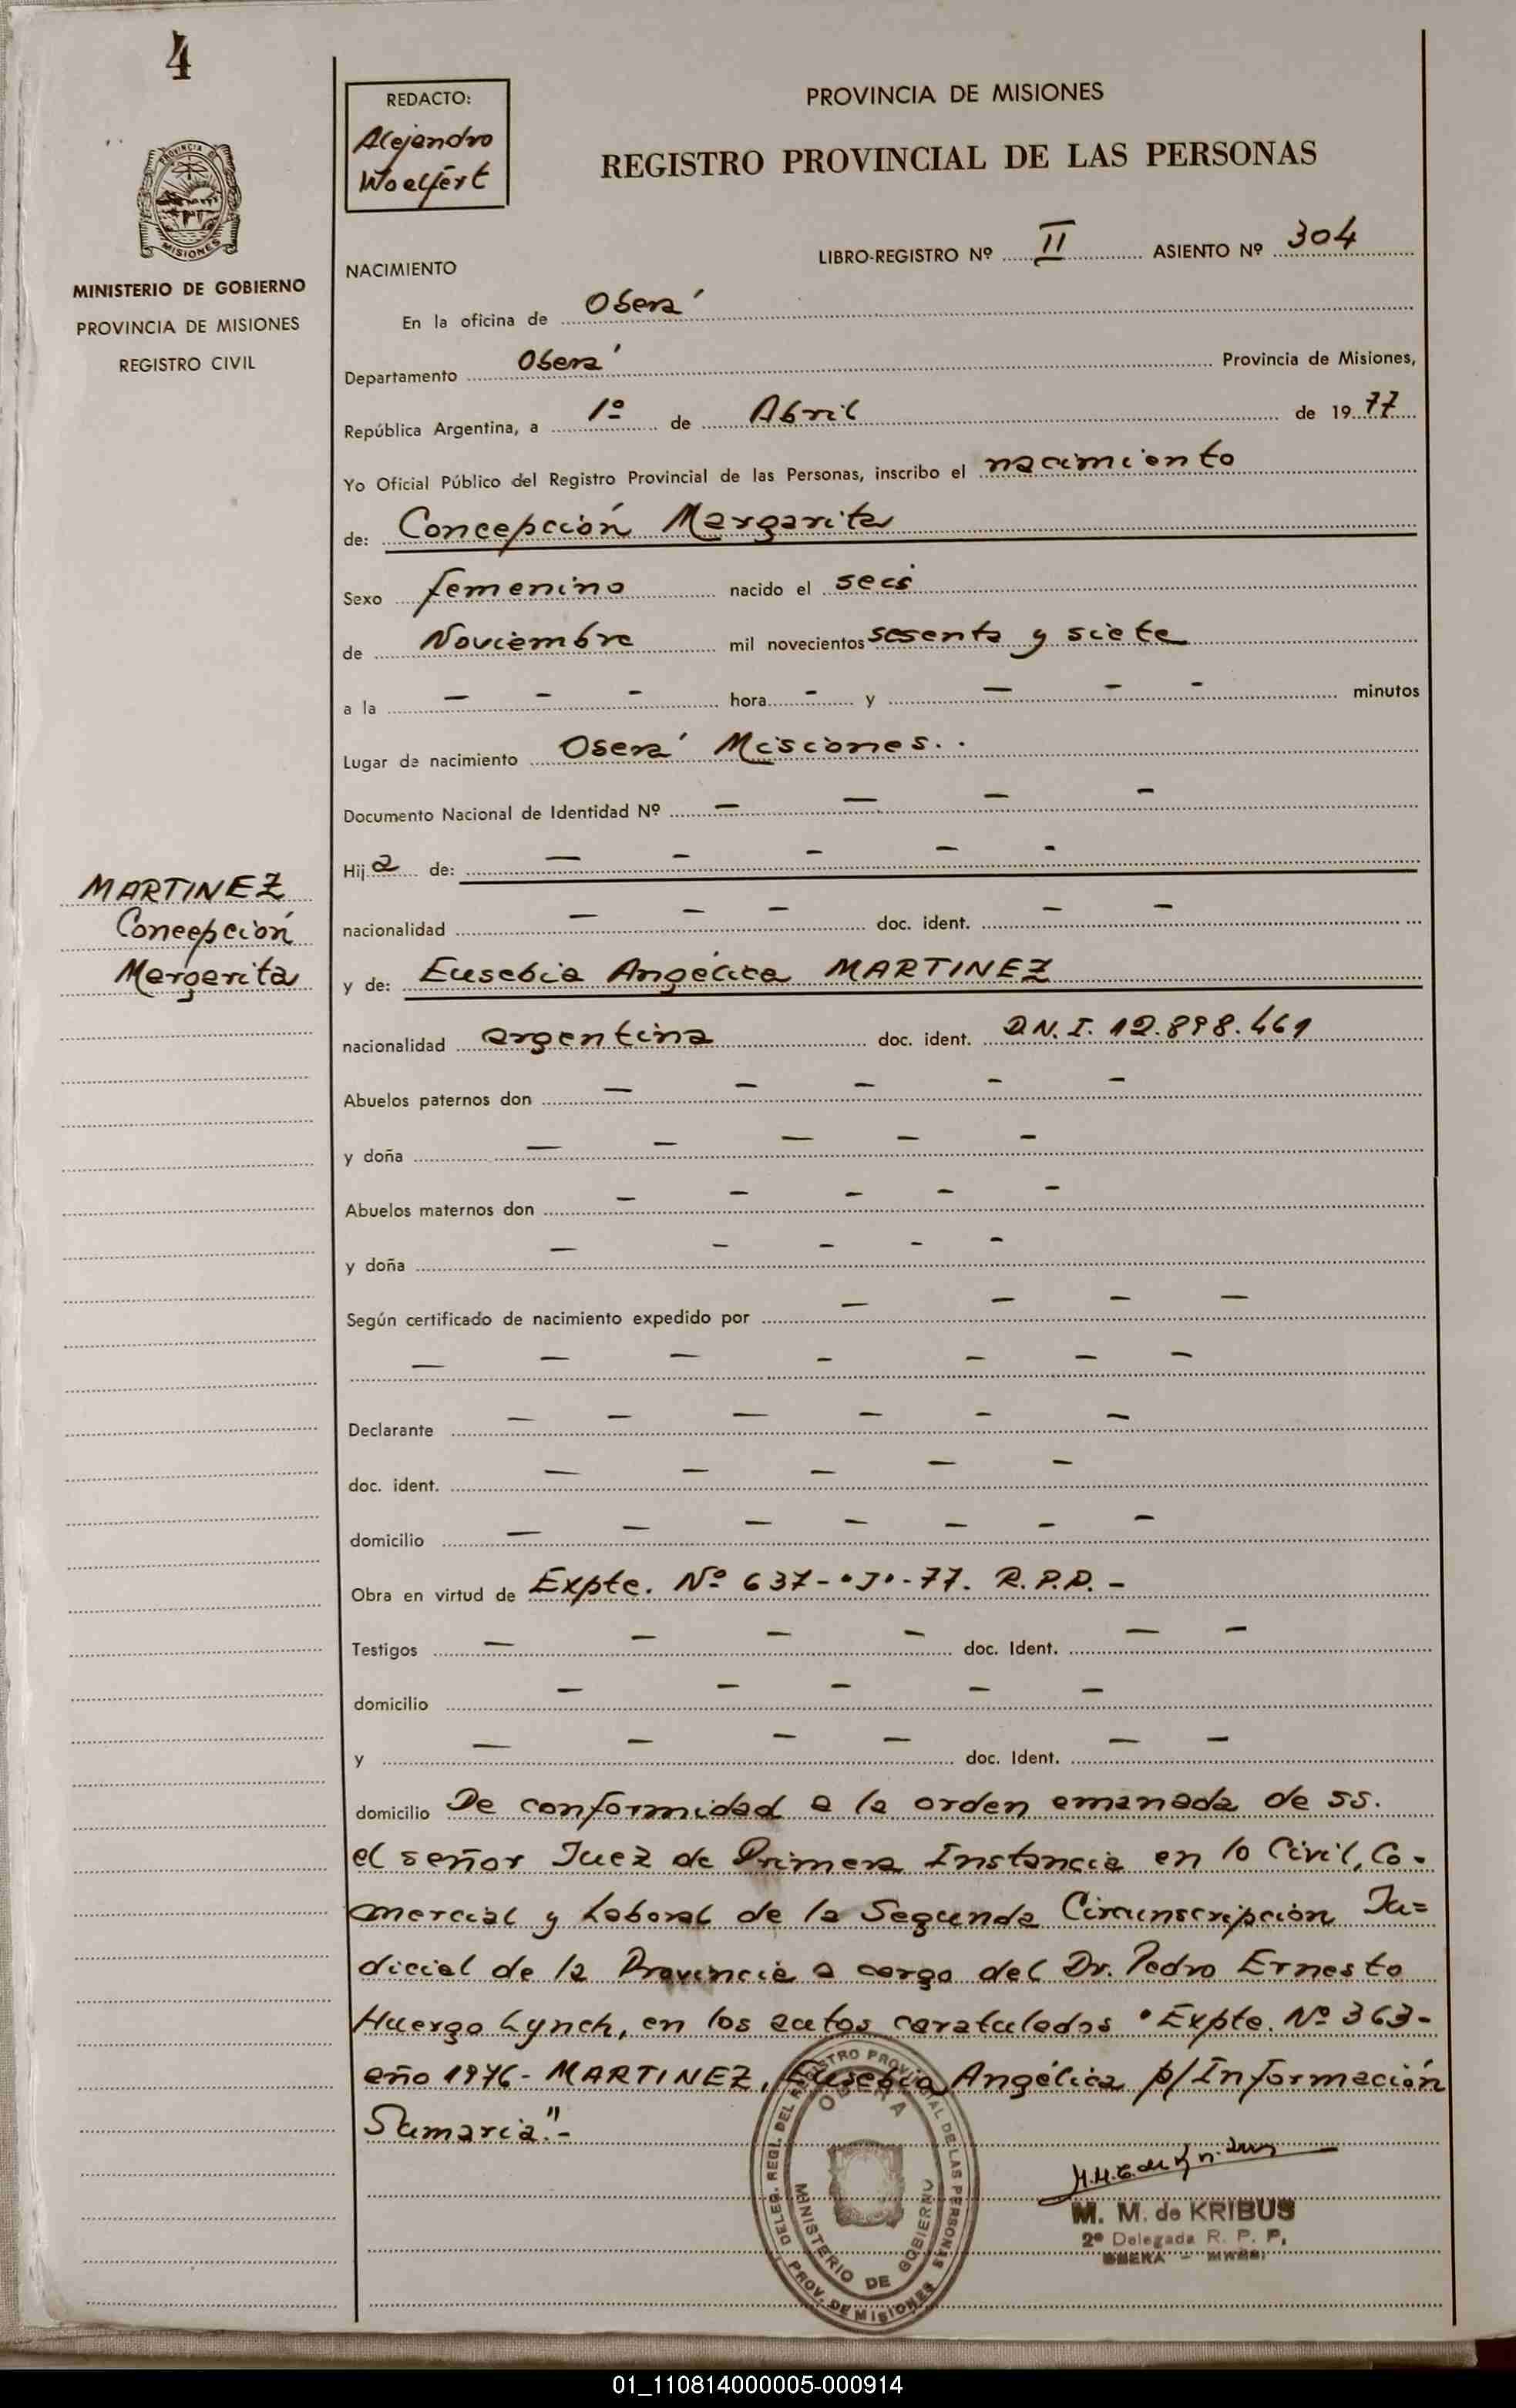 4
REDACTO:
Alejandro
Woelfert
PROVINCIA DE MISIONES
REGISTRO PROVINCIAL DE LAS PERSONAS
PROVINCIA DE
MISIONES
MINISTERIO DE GOBIERNO
PROVINCIA DE MISIONES
REGISTRO CIVIL
LIBRO-REGISTRO Nº II ASIENTO Nº 304
NACIMIENTO
En la oficina de Oberá
Departamento Oberá Provincia de Misiones,
República Argentina, a 1º de Abril de 1977
Yo Oficial Público del Registro Provincial de las Personas, inscribo el nacimiento
de: Concepción Margarita
Sexo femenino nacido el seis
de Noviembre mil novecientos sesenta y siete
a la — - - hora - y — - - minutos
Lugar de nacimiento Oberá Misiones..
Documento Nacional de Identidad Nº — — — -
Hija de: — - - - -
MARTINEZ
Concepción
Margarita
nacionalidad — - - doc. ident. — -
y de: Eusebia Angélica MARTINEZ
nacionalidad argentina doc. ident. D.N.I. 12.898.461
Abuelos paternos don — — - - -
y doña — — — - -
Abuelos maternos don — - - - -
y doña — - - - -
Según certificado de nacimiento expedido por — — - —
— — — - - - -
Declarante — - — - - -
doc. ident. — — - — -
domicilio — — — - - - -
Obra en virtud de Expte. Nº 637-"J"-77. R.P.P.-
Testigos — — - - doc. Ident. — -
domicilio — - - - -
y — — - — doc. Ident. — -
domicilio De conformidad a la orden emanada de SS.
el señor Juez de Primera Instancia en lo Civil, Co-
mercial y Laboral de la Segunda Circunscripción Ju=
dicial de la Provincia a cargo del Dr. Pedro Ernesto
Huergo Lynch, en los autos caratulados "Expte. Nº 363-
año 1976- MARTINEZ, Eusebia Angélica p/Información
Sumaria".-
DELEG. REGL. DEL REGISTRO PROVINCIAL DE LAS PERSONAS
OBERA
MINISTERIO DE GOBIERNO
PROV. DE MISIONES
M. M. de KRIBUS
2º Delegada R. P. P.
OBERA -
01_110814000005-000914